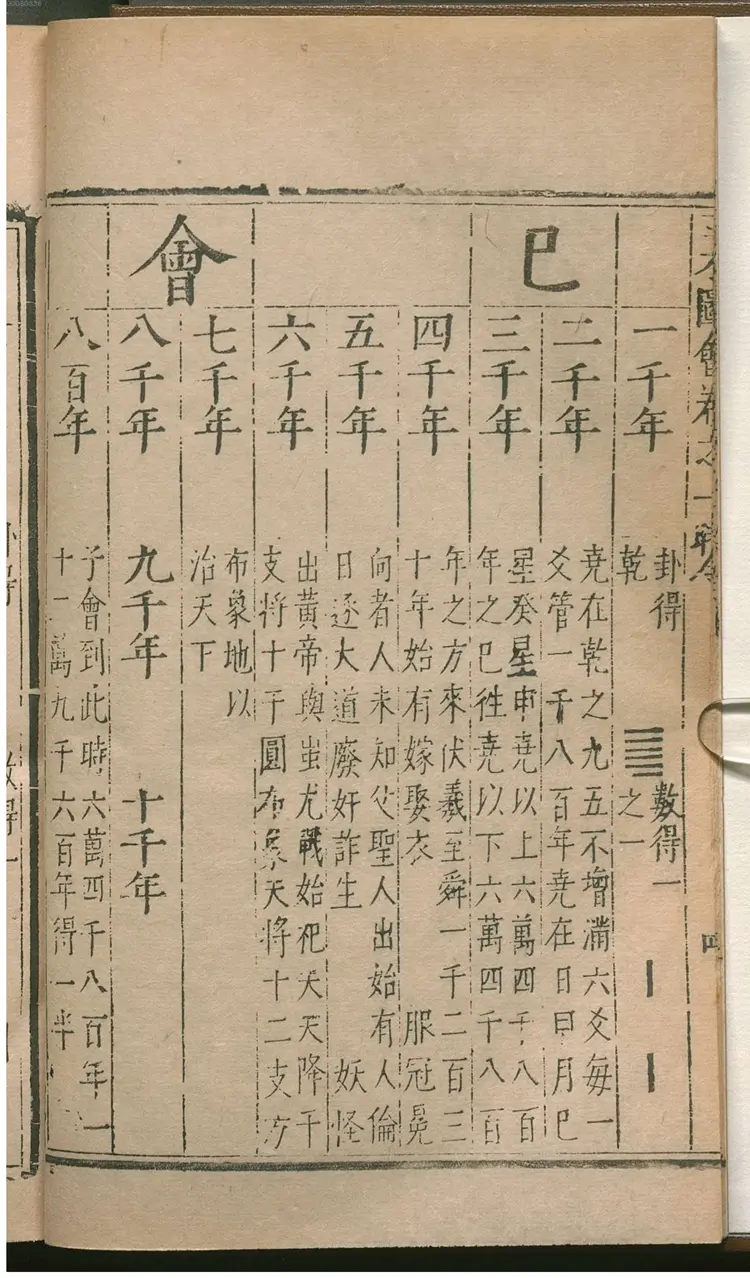 三才圖會卷之一
四
巳
會
一千年
卦得 數得一
乾 之一
二千年
堯在乾之九五不增滿六爻每一
爻管一千八百年堯在日甲月巳
三千年
星癸星申堯以上六萬四千八百
年之巳徃堯以下六萬四千八百
四千年
年之方來伏羲至舜一千二百三
十年始有嫁娶衣 服冠冕
五千年
向者人未知父聖人出始有人倫
日逐大道廢奸詐生 妖怪
六千年
出黃帝與蚩尤戰始祀天天降干
支將十干圓布象天將十二支方
七千年
布象地以
治天下
八千年 九千年 十千年
八百年
子會到此時六萬四千八百年一
十二萬九千六百年得一半